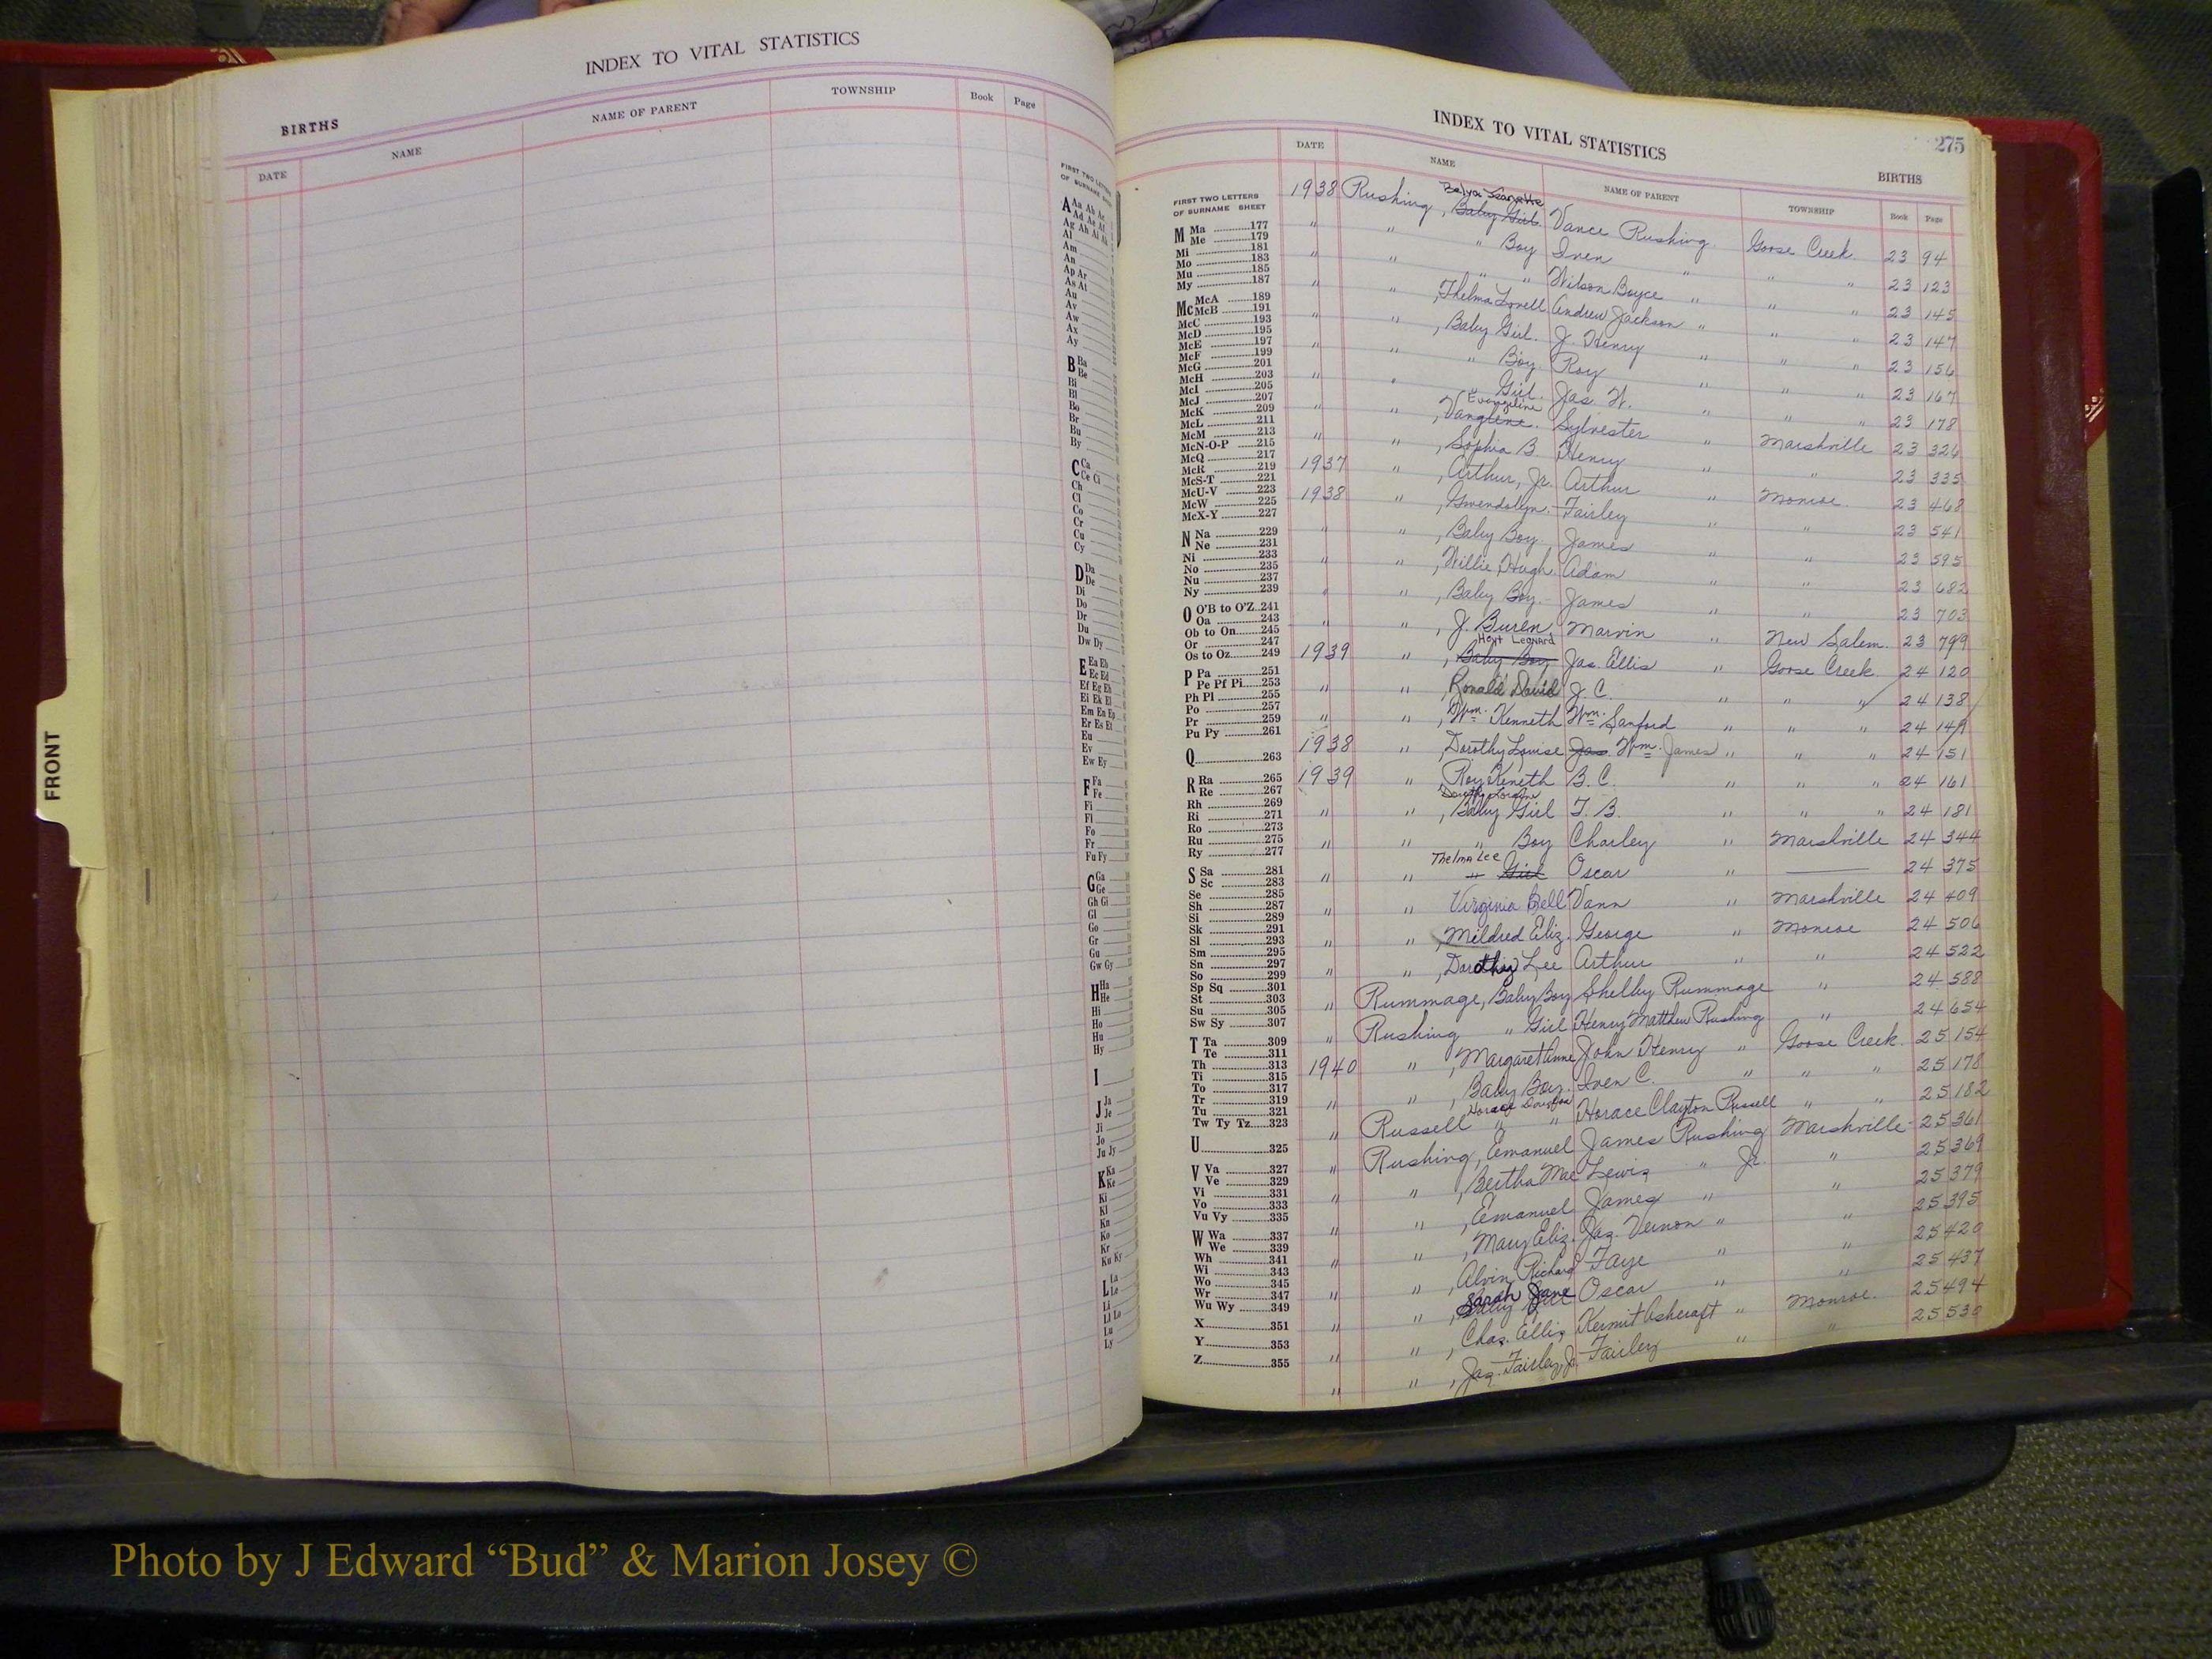 INDEX TO VITAL STATISTICS
BIRTHS
DATE NAME NAME OF PARENT TOWNSHIP Book Page
FIRST TWO LETTERS
OF SURNAME
A Aa Ab Ac
Ad Ae Af
Ag Ah Ai Ak
Al
Am
An
Ap Ar
As At
Au
Av
Aw
Ax
Ay
B Ba
Be
Bi
Bl
Bo
Br
Bu
By
C Ca
Ce Ci
Ch
Cl
Co
Cr
Cu
Cy
D Da
De
Di
Do
Dr
Du
Dw Dy
E Ea Eb
Ec Ed
Ef Eg Eh
Ei Ek El
Em En Ep
Er Es Et
Eu
Ev
Ew Ey
F Fa
Fe
Fi
Fl
Fo
Fr
Fu Fy
G Ga
Ge
Gh Gi
Gl
Go
Gr
Gu
Gw Gy
H Ha
He
Hi
Ho
Hu
Hy
I
J Ja
Je
Ji
Jo
Ju Jy
K Ka
Ke
Ki
Kl
Kn
Ko
Kr
Ku Ky
L La
Le
Li
Ll Lo
Lu
Ly
FRONT
INDEX TO VITAL STATISTICS
275
BIRTHS
DATE NAME NAME OF PARENT TOWNSHIP Book Page
FIRST TWO LETTERS
OF SURNAME SHEET
M Ma 177
Me 179
Mi 181
Mo 183
Mu 185
My 187
Mc McA 189
McB 191
McC 193
McD 195
McE 197
McF 199
McG 201
McH 203
McI 205
McJ 207
McK 209
McL 211
McM 213
McN-O-P 215
McQ 217
McR 219
McS-T 221
McU-V 223
McW 225
McX-Y 227
N Na 229
Ne 231
Ni 233
No 235
Nu 237
Ny 239
O O'B to O'Z 241
Oa 243
Ob to On 245
Or 247
Os to Oz 249
P Pa 251
Pe Pf Pi 253
Ph Pl 255
Po 257
Pr 259
Pu Py 261
Q 263
R Ra 265
Re 267
Rh 269
Ri 271
Ro 273
Ru 275
Ry 277
S Sa 281
Sc 283
Se 285
Sh 287
Si 289
Sk 291
Sl 293
Sm 295
Sn 297
So 299
Sp Sq 301
St 303
Su 305
Sw Sy 307
T Ta 309
Te 311
Th 313
Ti 315
To 317
Tr 319
Tu 321
Tw Ty Tz 323
U 325
V Va 327
Ve 329
Vi 331
Vo 333
Vu Vy 335
W Wa 337
We 339
Wh 341
Wi 343
Wo 345
Wr 347
Wu Wy 349
X 351
Y 353
Z 355
1938 Rushing, Baby Girl. Vance Rushing Goose Creek 23 94
" " " Boy Iven " " " 23 123
" " " " Wilson Boyce " " " 23 145
" " , Thelma Lovell Andrew Jackson " " " 23 147
" " , Baby Girl. J. Henry " " " 23 156
" " " Boy Roy " " " 23 167
" " " Girl. Jas. W. " " " 23 178
Evangeline
" " , Sylvester " Marshville 23 326
" " , Sophia B Henry " " 23 335
1937 " , Arthur, Jr. Arthur " Monroe 23 468
1938 " , Gwendolyn. Fairley " " 23 541
" " , Baby Boy James " " 23 595
" " , Willie Hugh. Adam " " 23 682
" " , Baby Boy. James " " 23 703
" " , J. Buren Marvin " New Salem. 23 799
Hoyt Leonard
1939 " , Baby Boy Jas. Ellis " Goose Creek 24 120
" " , Ronald David J. C. " " " 24 138
" " , Wm. Kenneth Wm. Sanford " " " 24 149
1938 " , Dorothy Louise Jas. Wm. James " " " 24 151
1939 " Roy Keneth B. C. " " " 24 161
" " , Baby Girl T. B. " " " 24 181
" " " Boy Charley " Marshville 24 344
Thelma Lee
" " " Girl Oscar " 24 375
" " Virginia Bell Vann " Marshville 24 409
" " , Mildred Eliz. George " Monroe 24 506
" " , Dorothy Lee Arthur " " 24 522
" Rummage, Baby Boy Shelby Rummage " 24 588
" Rushing " Girl Henry Matthew Rushing " 24 654
1940 " , Margaret Anne John Henry " Goose Creek 25 154
" " , Baby Boy. Iven C. " " " 25 178
" Russell " " Horace Clayton Russell " " 25 182
" Rushing, Emanuel James Rushing Marshville 25 361
" " , Bertha Mae Lewis " Jr. " 25 369
" " , Emanuel James " " 25 379
" " , Mary Eliz. Jas. Vernon " " 25 395
" " , Alvin Richard Faye " " 25 420
" " , Sarah Jane Oscar " " 25 437
" " , Chas. Ellis Kermit Ashcraft " Monroe. 25 494
" " , Jas. Fairley, Jr. Fairley " " 25 530
Photo by J Edward “Bud” & Marion Josey ©